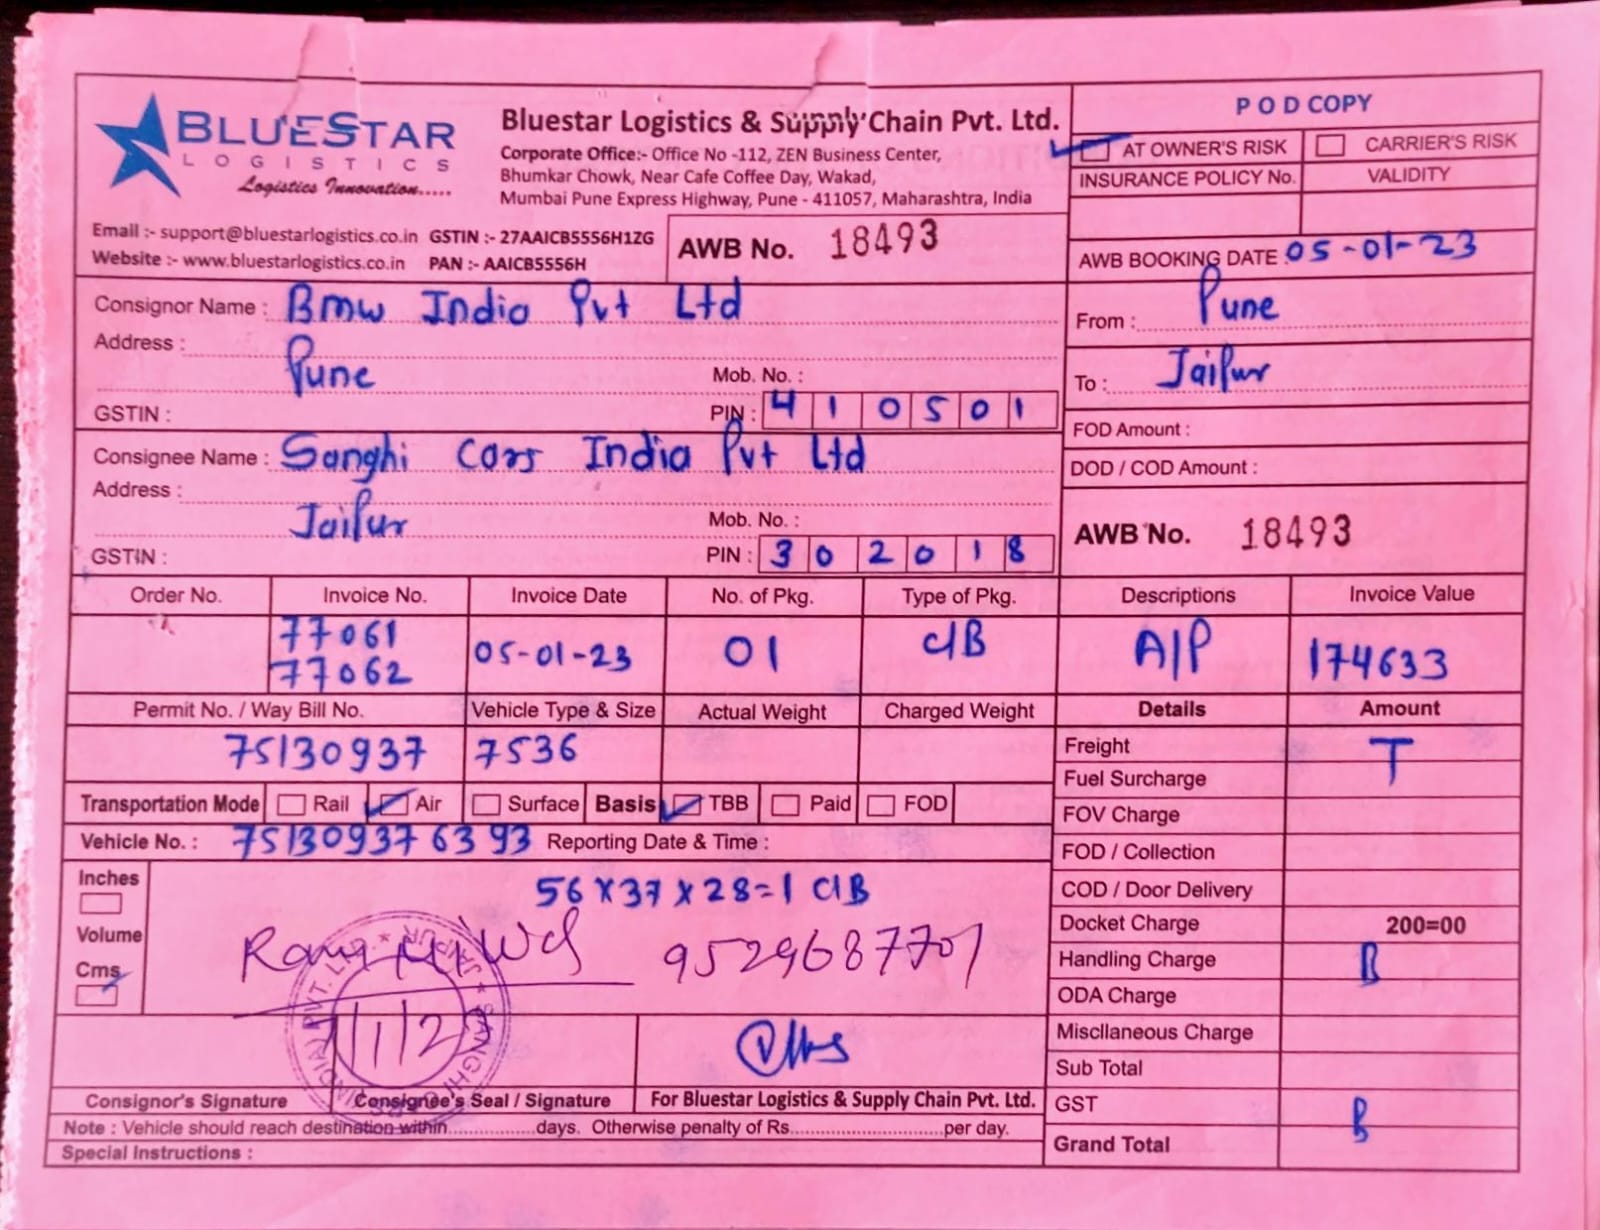 BLUESTAR
LOGISTICS
Logistics Innovation.....
Bluestar Logistics & Supply Chain Pvt. Ltd.
Corporate Office:- Office No -112, ZEN Business Center,
Bhumkar Chowk, Near Cafe Coffee Day, Wakad,
Mumbai Pune Express Highway, Pune - 411057, Maharashtra, India
POD COPY
AT OWNER'S RISK CARRIER'S RISK
INSURANCE POLICY No. VALIDITY
Email :- support@bluestarlogistics.co.in GSTIN :- 27AAICB5556H1ZG
Website :- www.bluestarlogistics.co.in PAN :- AAICB5556H
AWB No. 18493
AWB BOOKING DATE : 05-01-23
Consignor Name : Bmw India Pvt Ltd
Address :
Pune
Mob. No. :
GSTIN :
PIN : 410501
From : Pune
To : Jaipur
FOD Amount :
DOD / COD Amount :
Consignee Name : Sanghi Cars India Pvt Ltd
Address :
Jaipur
Mob. No. :
GSTIN :
PIN : 302018
AWB No. 18493
Order No. Invoice No. Invoice Date No. of Pkg. Type of Pkg. Descriptions Invoice Value
77061
77062 05-01-23 01 C/B A/P 174633
Permit No. / Way Bill No. Vehicle Type & Size Actual Weight Charged Weight Details Amount
75130937 7536
Freight T
Fuel Surcharge
Transportation Mode Rail Air Surface Basis TBB Paid FOD
FOV Charge
Vehicle No. : 751309376393 Reporting Date & Time :
FOD / Collection
Inches
56 X 37 X 28=1 C/B
COD / Door Delivery
Volume
Docket Charge 200=00
9529687707
Cms
Handling Charge B
ODA Charge
Miscllaneous Charge
Sub Total
Consignor's Signature Consignee's Seal / Signature For Bluestar Logistics & Supply Chain Pvt. Ltd.
GST B
Note : Vehicle should reach destination within..............days. Otherwise penalty of Rs........................per day.
Grand Total
Special Instructions :